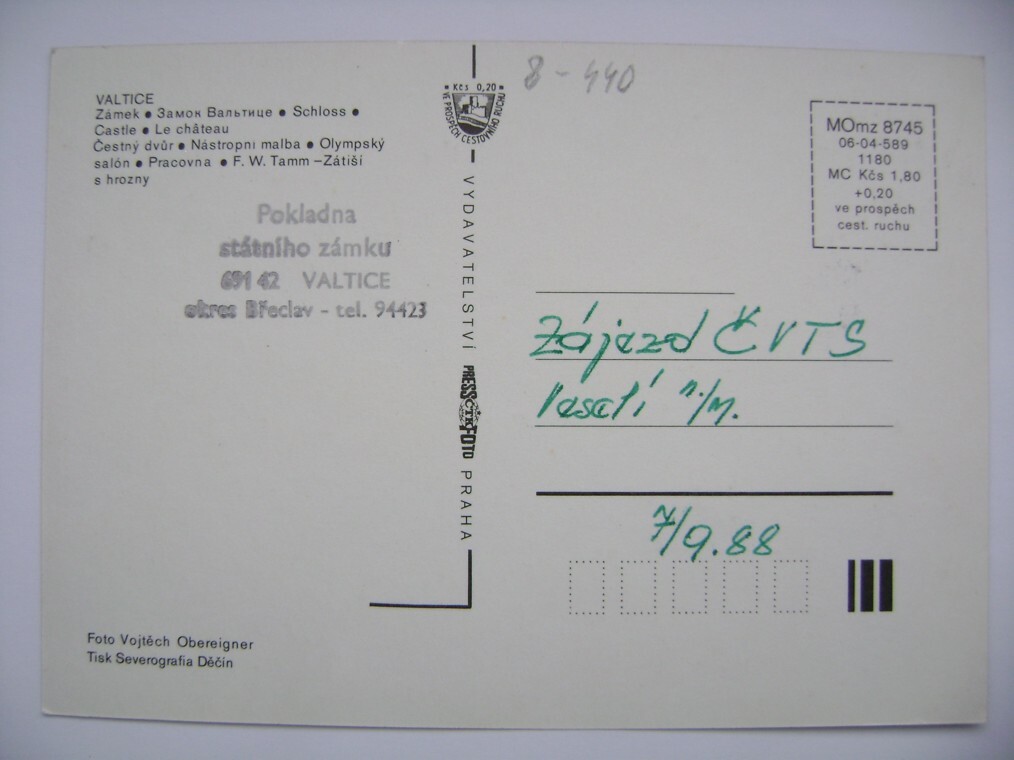 VALTICE
Zámek ● Замок Вальтице ● Schloss ●
Castle ● Le château
Čestný dvůr ● Nástropní malba ● Olympský
salón ● Pracovna ● F. W. Tamm –Zátiší
s hrozny
Pokladna
státního zámku
691 42 VALTICE
okres Břeclav - tel. 94423
Foto Vojtěch Obereigner
Tisk Severografia Děčín
Kčs 0,20
VE PROSPĚCH CESTOVNÍHO RUCHU
VYDAVATELSTVÍ PRESSFOTO PRAHA
ČTK
8-440
MOmz 8745
06-04-589
1180
MC Kčs 1,80
+0,20
ve prospěch
cest. ruchu
Zájezd ČVTS
Veselí n./M.
7/9.88